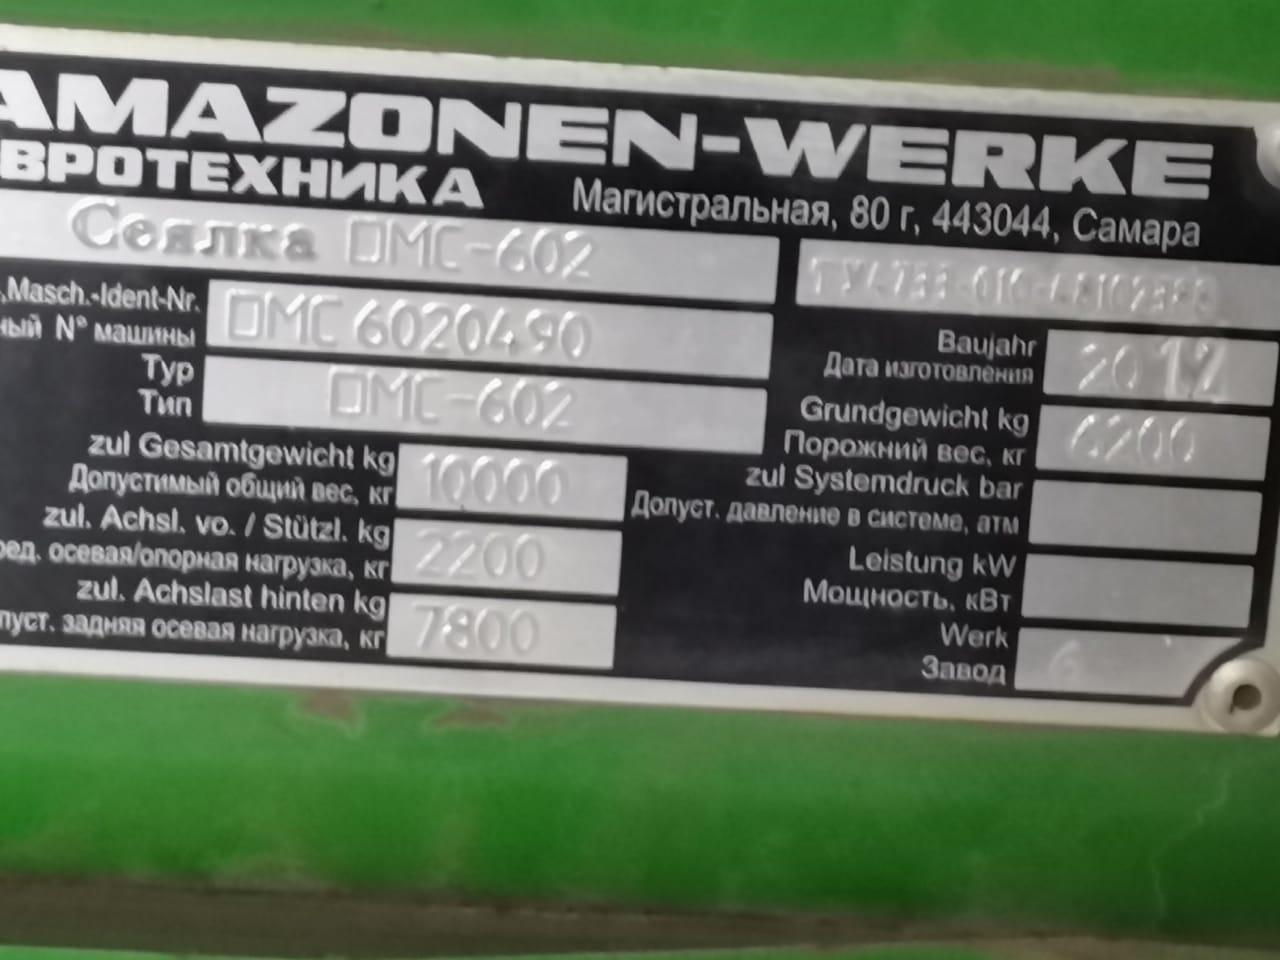 AMAZONEN-WERKE
ВРОТЕХНИКА
Магистральная, 80 г, 443044, Самара
Сеялка DMC-602
.Masch.-Ident-Nr.
ный № машины
DMC 6020490
Typ
Тип
DMC-602
zul Gesamtgewicht kg
Допустимый общий вес, кг
10000
zul. Achsl. vo. / Stützl. kg
ред. осевая/опорная нагрузка, кг
2200
zul. Achslast hinten kg
пуст. задняя осевая нагрузка, кг
7800
Baujahr
Дата изготовления
2012
Grundgewicht kg
Порожний вес, кг
6200
zul Systemdruck bar
Допуст. давление в системе, атм
Leistung kW
Мощность, кВт
Werk
Завод
6